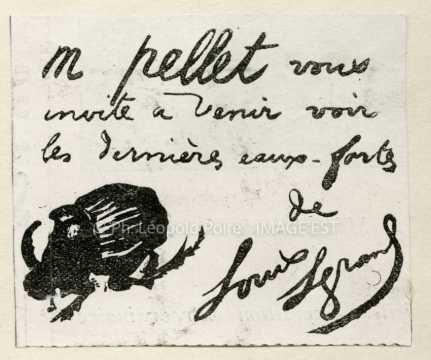 m pellet vous
invite à venir voir
les dernières eaux-fortes
de
Louis Legrand
© Ph. Léopold Poiré IMAGE'EST